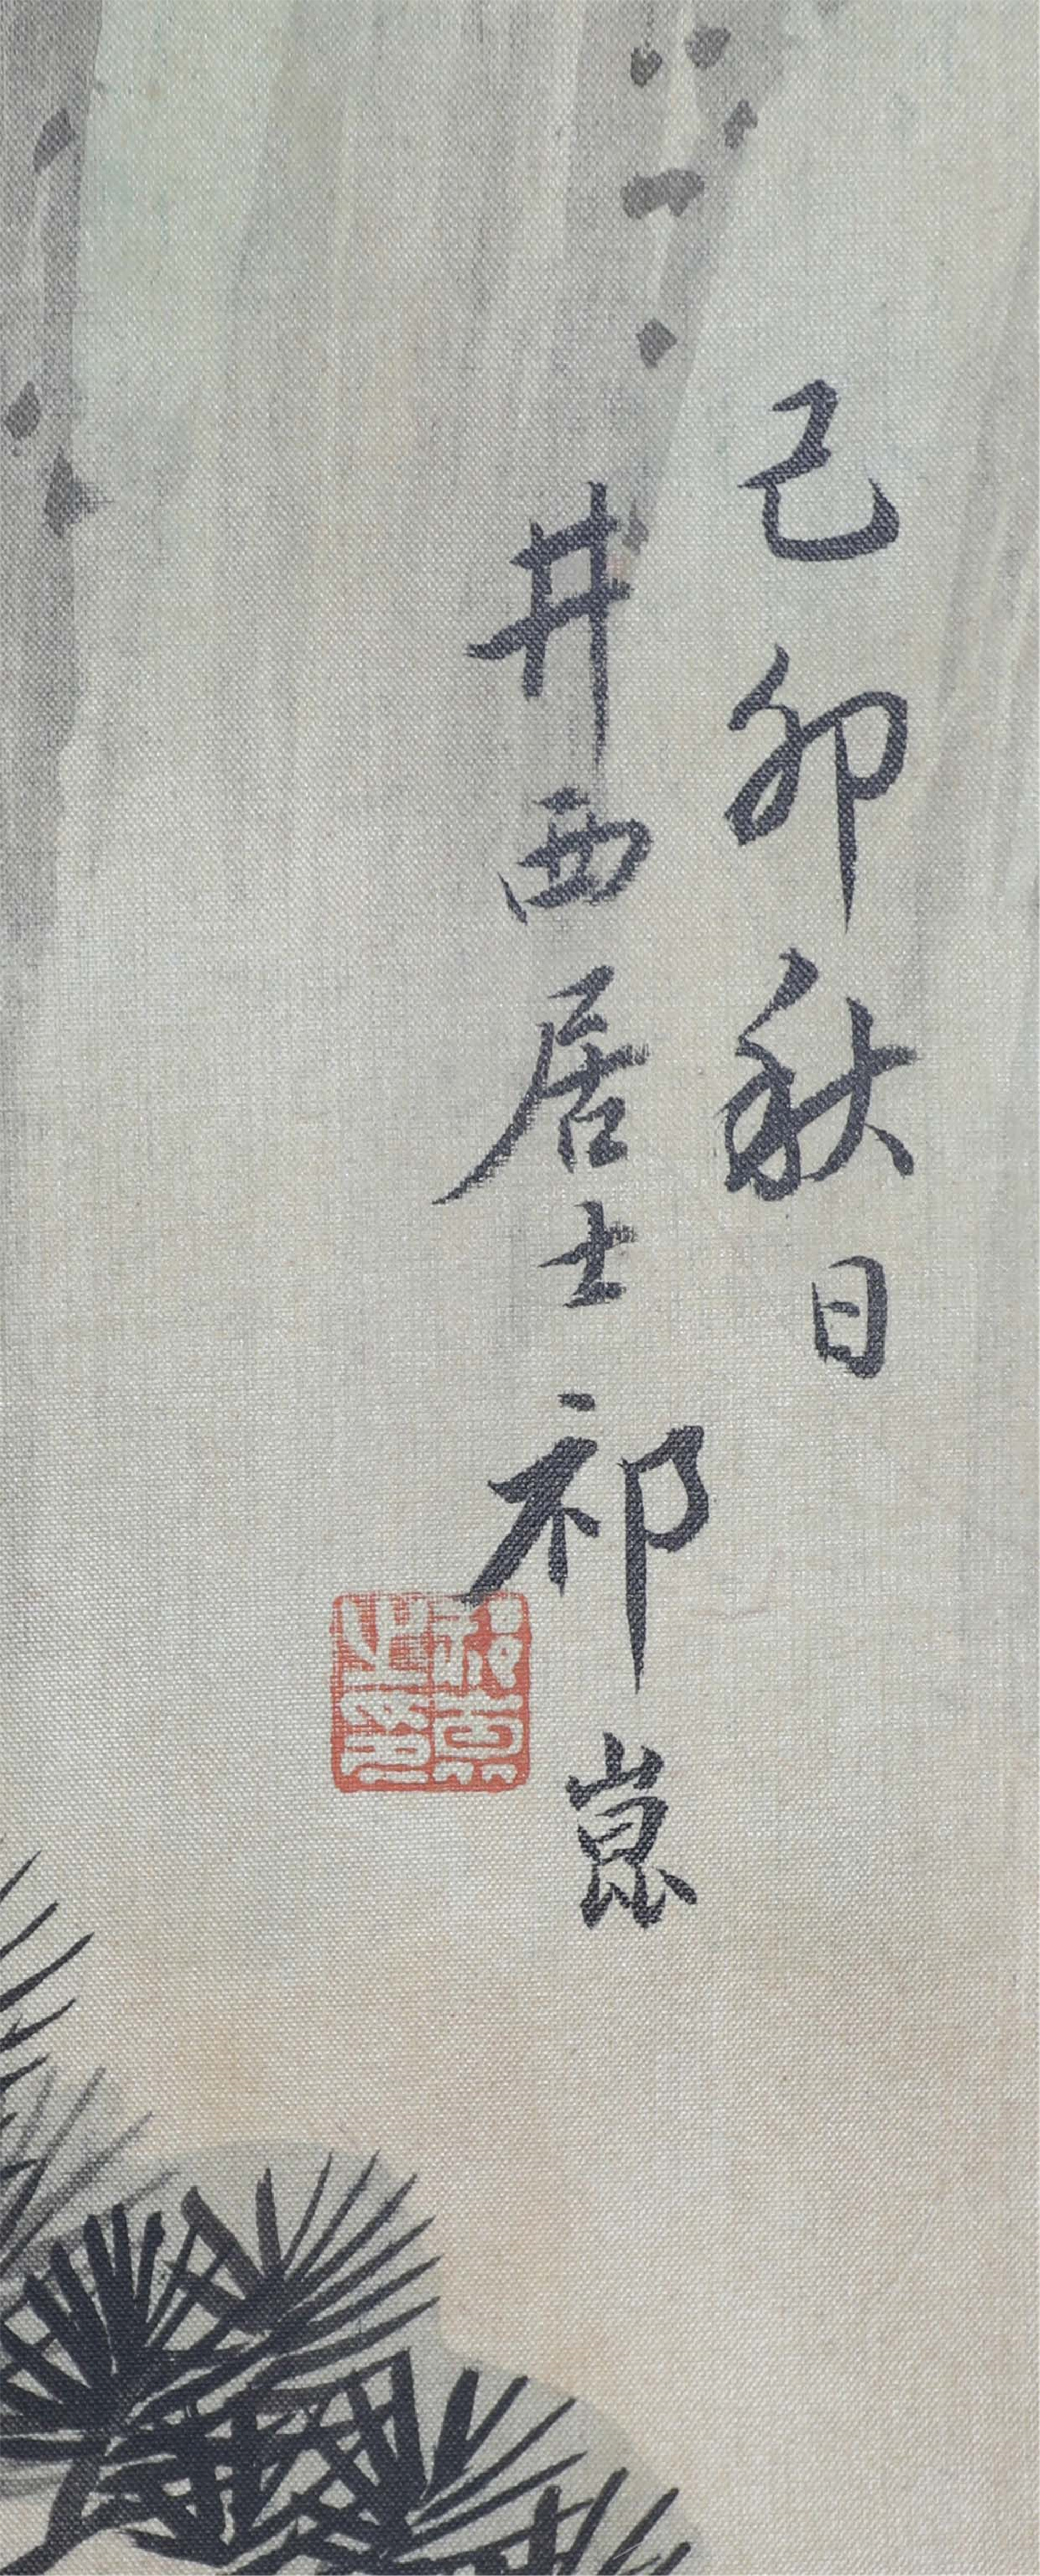 己卯秋日
井西居士祁崑
祁崑之印